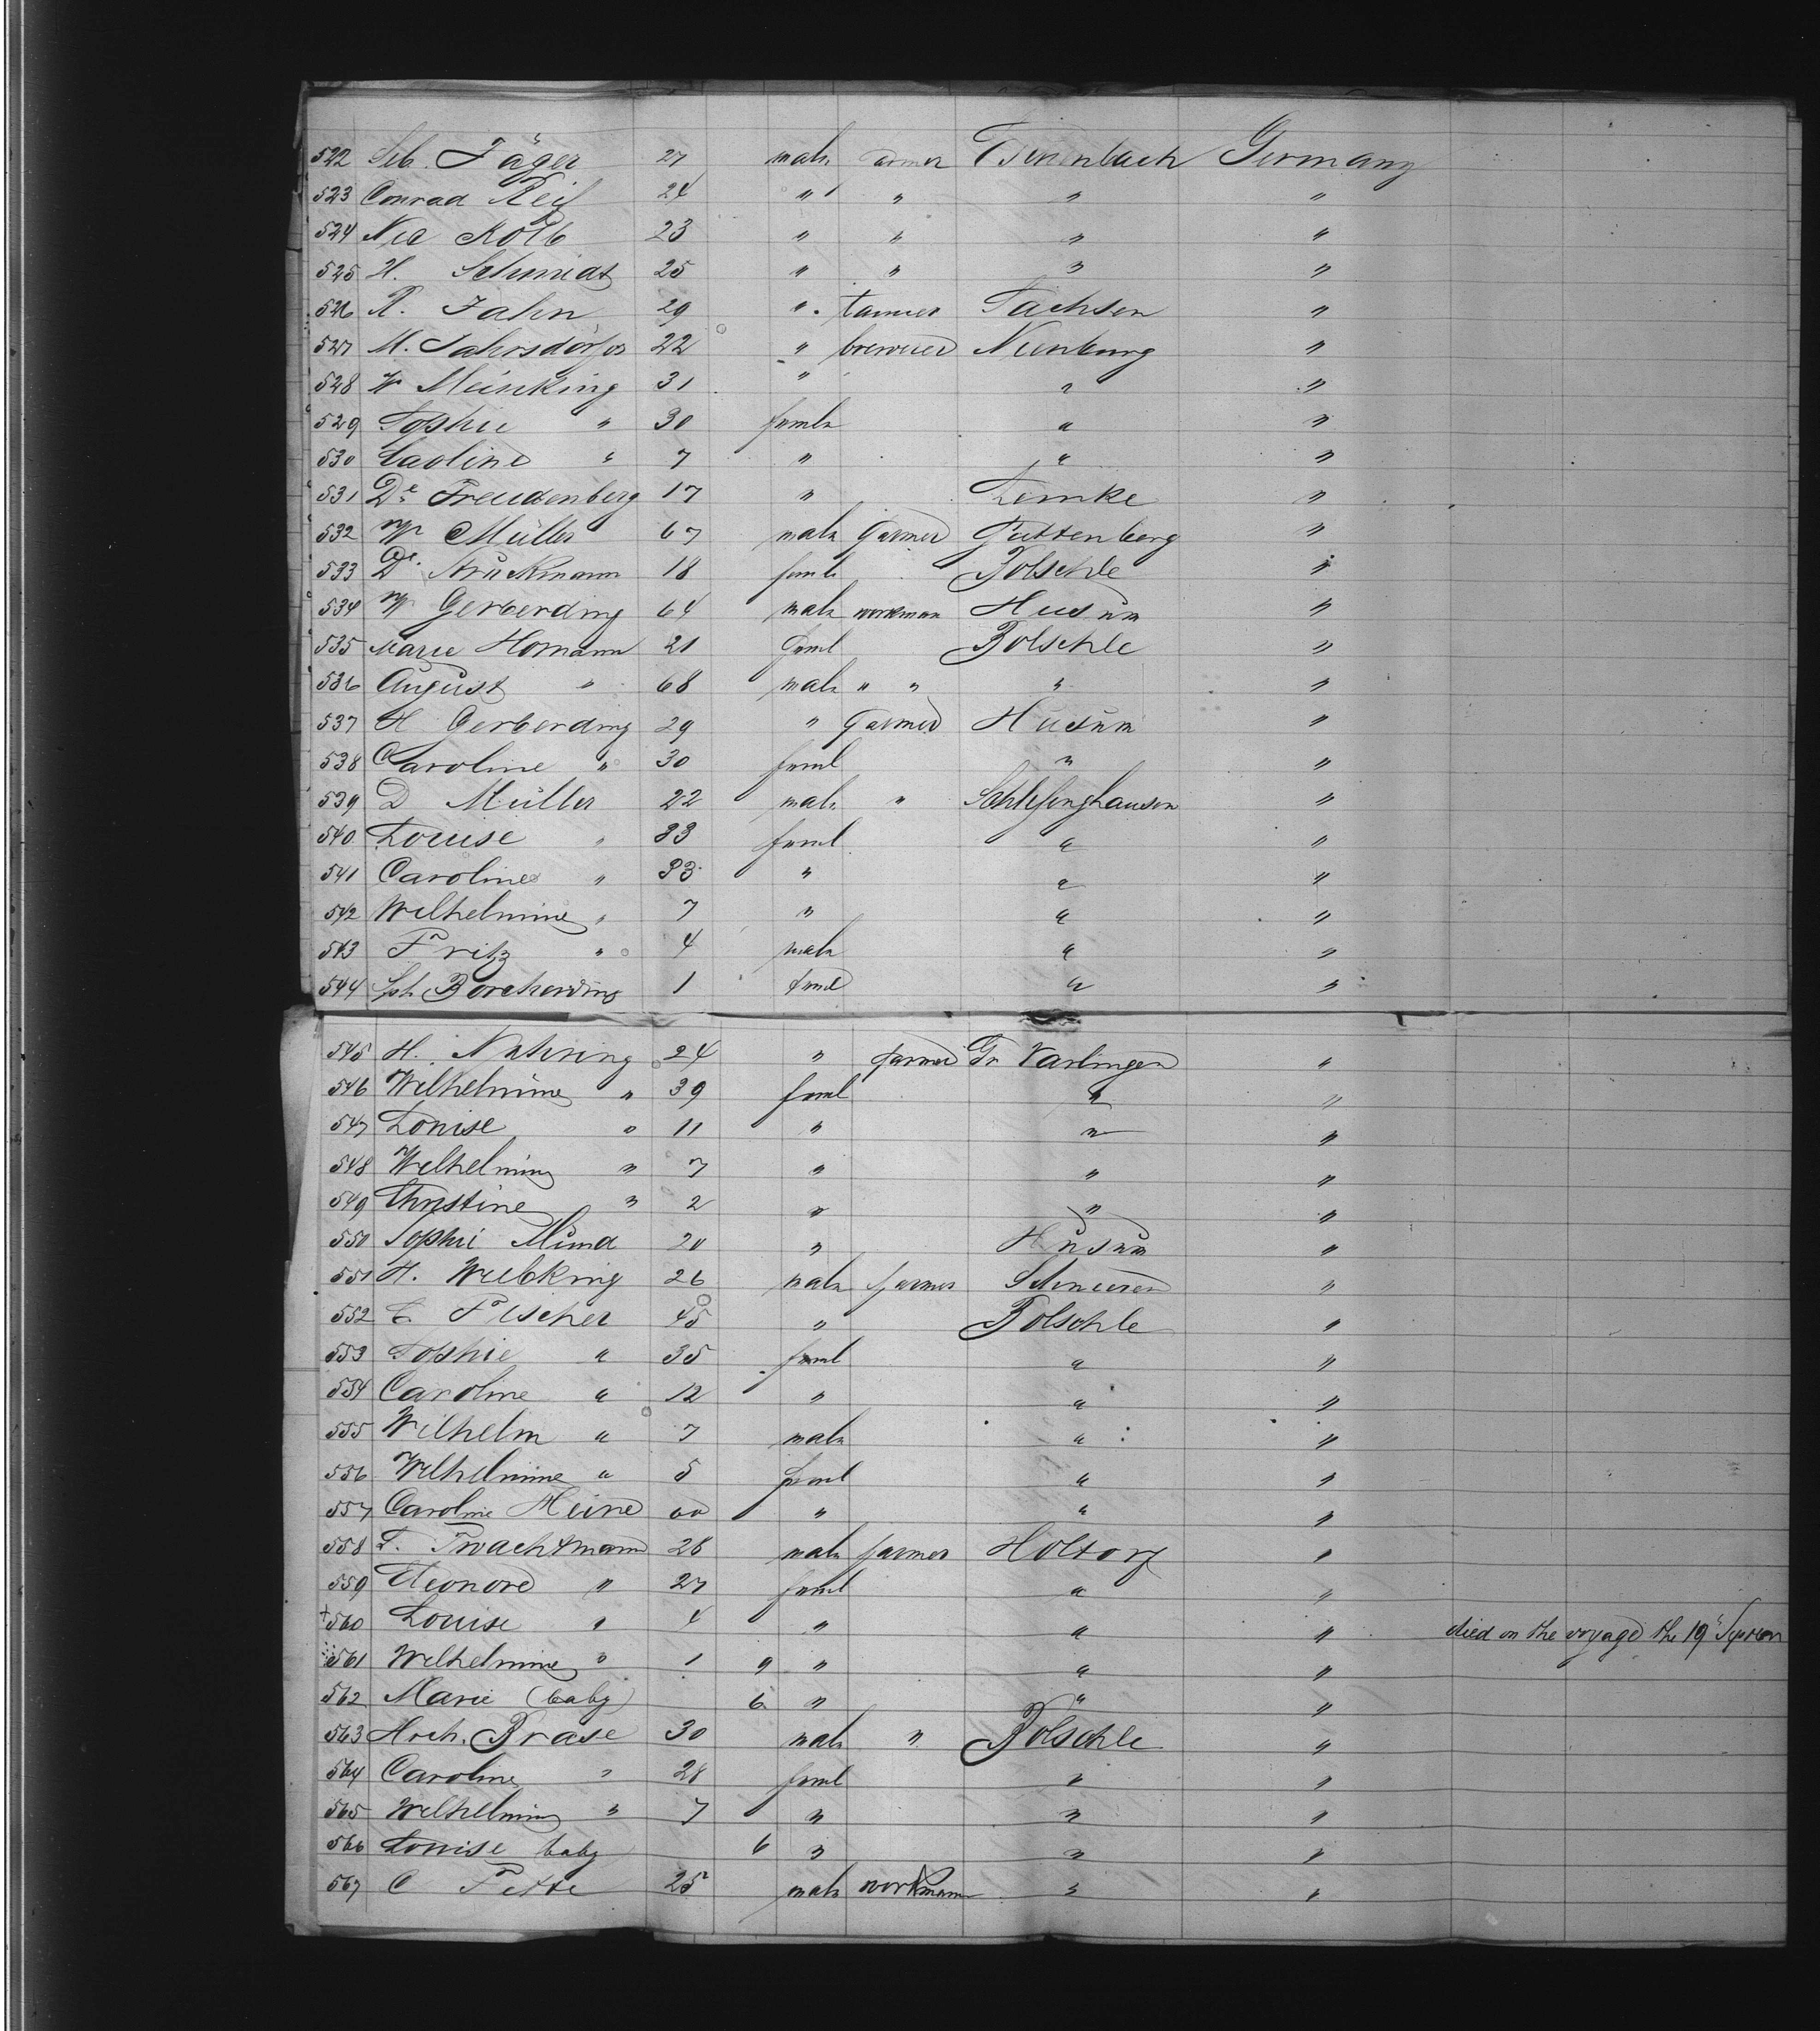 522 Seb. Jäger 27 male farmer Germany
523 Conrad Reif 24 " " " "
524 Nic Kolb 23 " " " "
525 H. Schmidt 25 " " " "
526 R. Jahn 29 " tanner Sachsen "
527 M. 22 " brewer Nienburg "
528 W Meinking 31 " " "
529 Sophie " 30 female " "
530 Caoline " 7 " " "
531 De Freudenberg 17 " Lemke "
532 W Müller 67 male farmer Guttenberg "
533 De. Krückmann 18 female Bolsehle "
534 W Gerberding 64 male workman Husum "
535 Marie Homann 21 feml Bolsehle "
536 August " 68 male " " " "
537 H Gerberding 29 " farmer Husum "
538 Caroline " 30 feml " "
539 D Müller 22 male " "
540 Louise " 33 feml " "
541 Caroline " 33 " " "
542 Wilhelmine " 7 " " "
543 Fritz " 4 male " "
544 Sph. Borcherding 1 feml " "
545 H. Nahring 24 " farmer Gr Varlingen "
546 Wilhelmine " 39 feml " "
547 Louise " 11 " " "
548 Wilhelmine " 7 " " "
549 Christine " 2 " " "
550 Sophie Mund 20 " Husum "
551 H. Wübking 26 male farmer Schneeren "
552 C Fischer 45 " Bolsehle "
553 Sophie " 35 feml " "
554 Caroline " 12 " " "
555 Wilhelm " 7 male " "
556 Wilhelmine " 5 feml " "
557 Caroline Heine " " "
558 F. Twachtmann 28 male farmer Holtorf "
559 Eleonore " 27 feml " "
+560 Louise " 4 " " " died on the voyage the 19
561 Wilhelmine " 1 9 " " "
562 Marie (baby) 6 " " "
563 Hrch. Brase 30 male " Bolsehle "
564 Caroline " 28 feml " "
565 Wilhelmine " 7 " " "
566 Louise baby 6 " " "
567 C Fette 25 male workmann " "